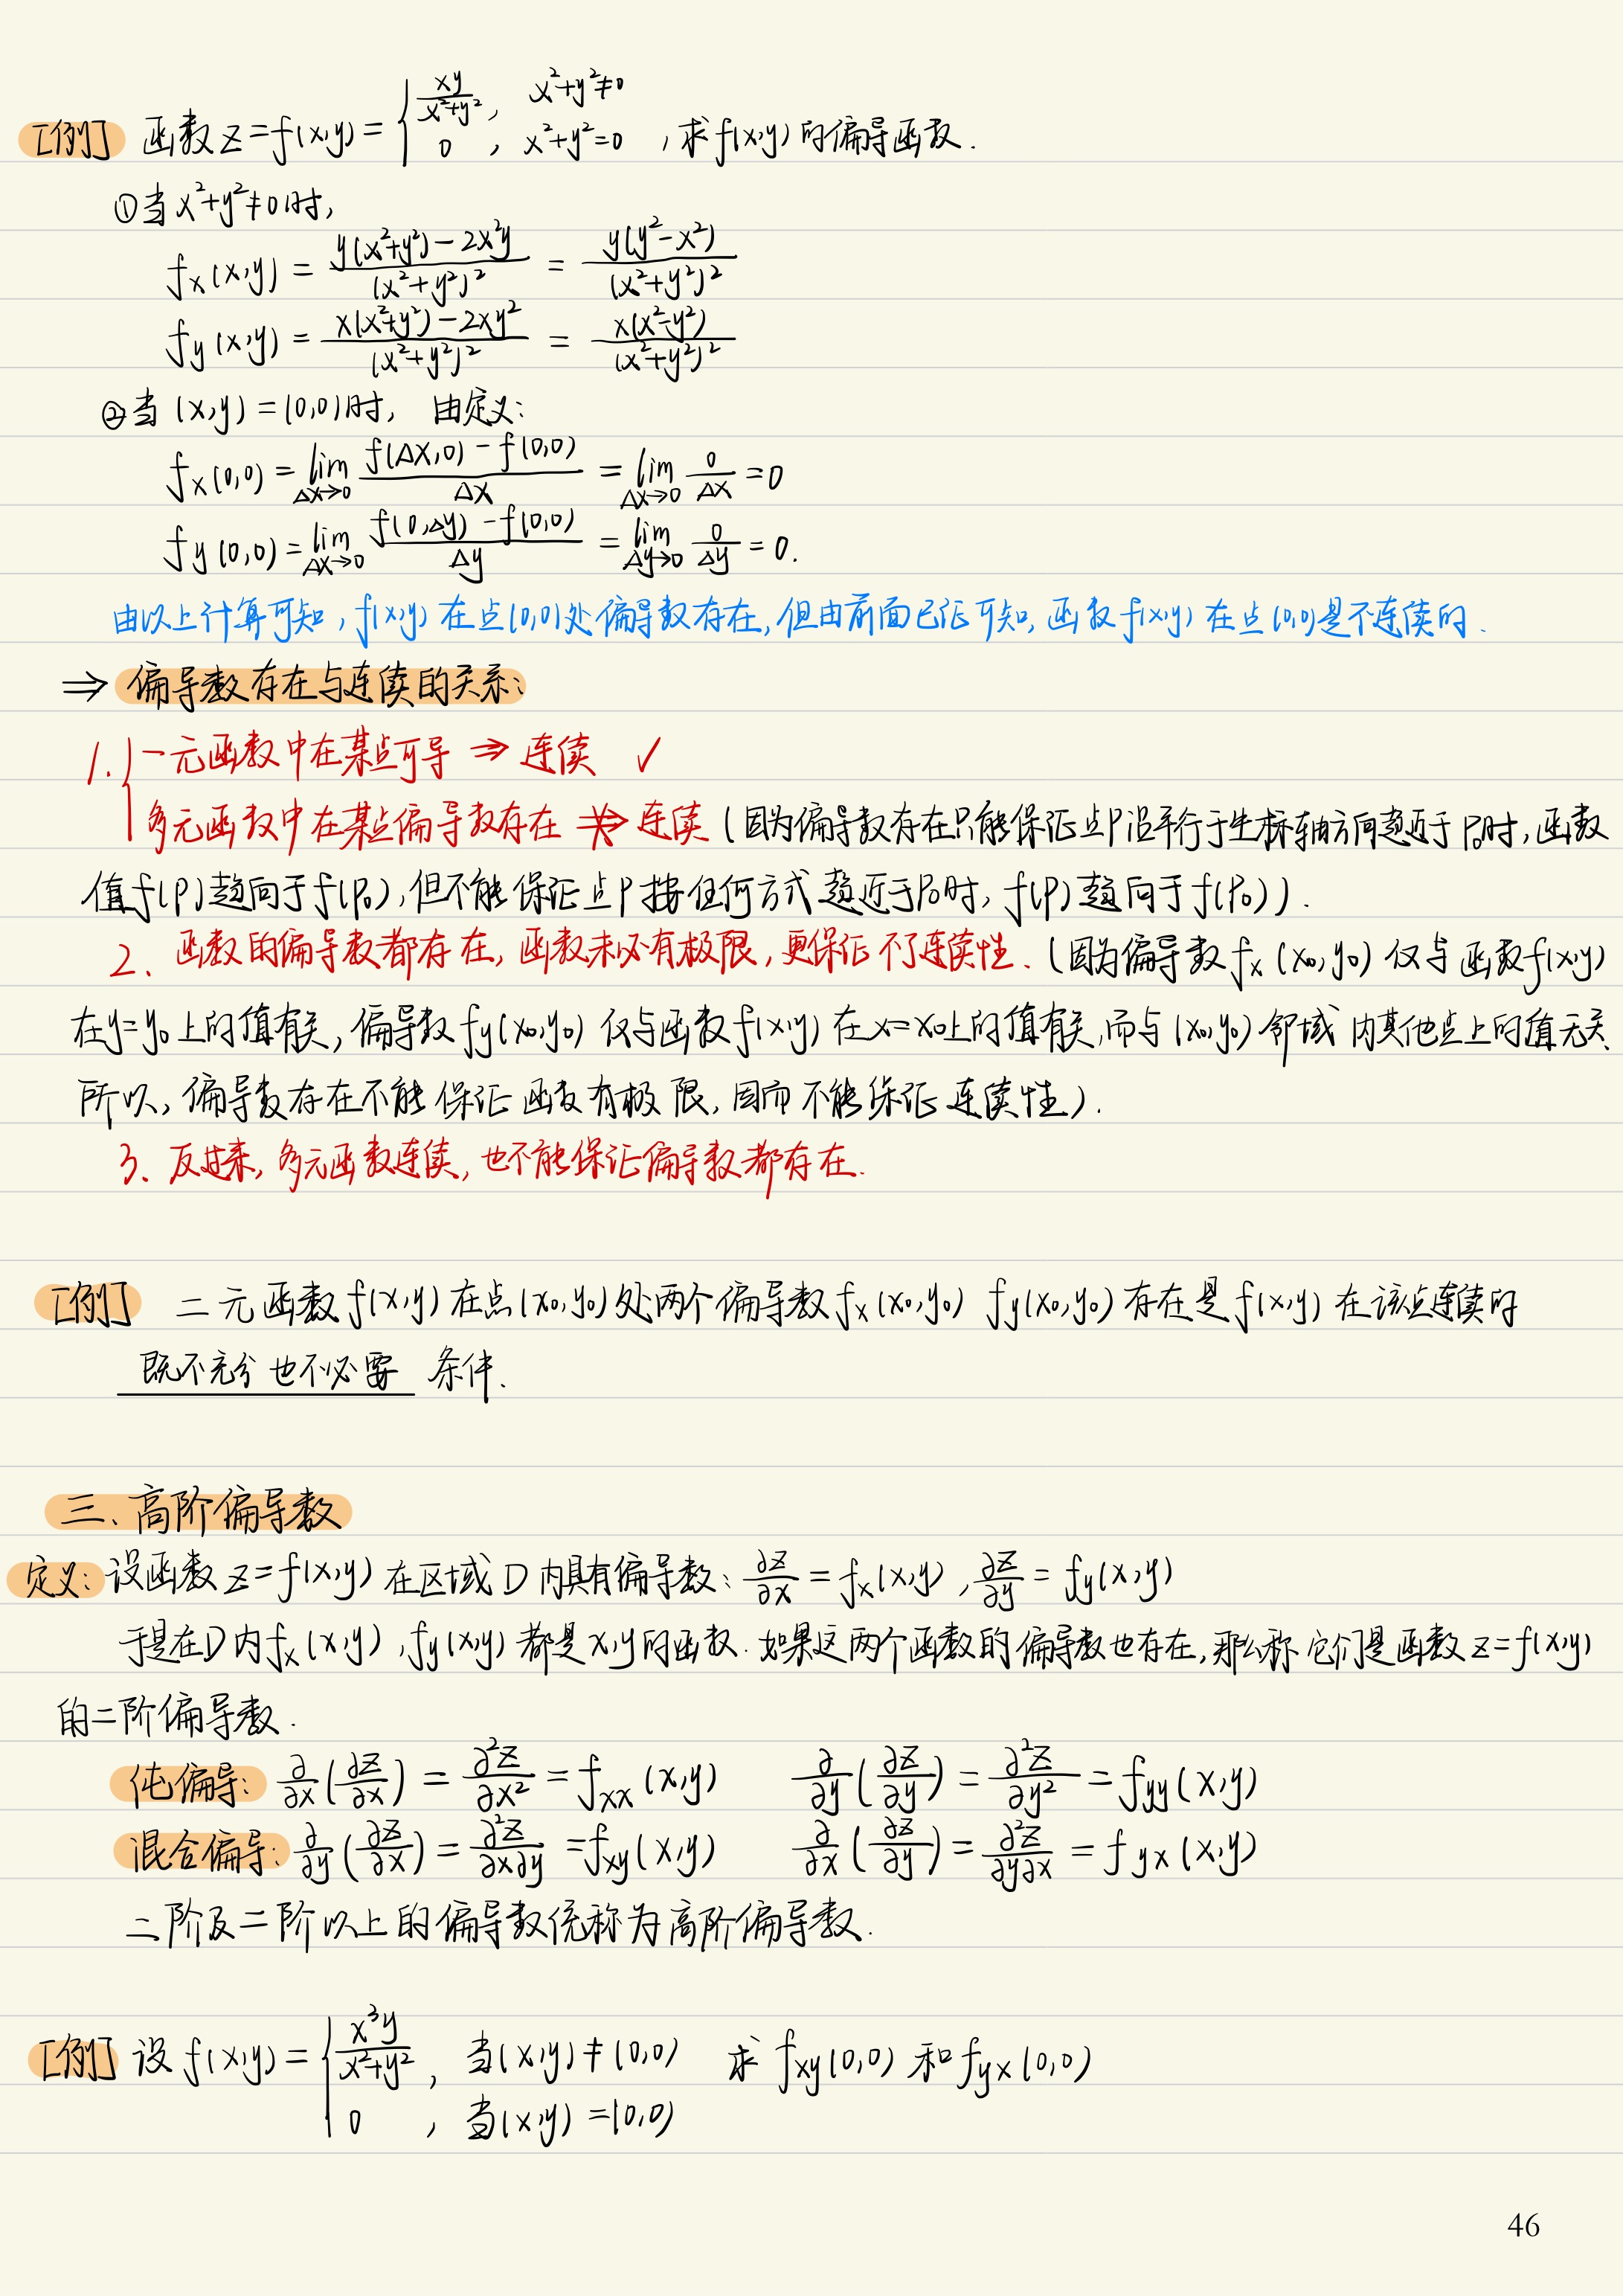 [例] 函数 z=f(x,y)={ xy/(x²+y²), x²+y²≠0
0, x²+y²=0 ,求f(x,y)的偏导函数.
①当x²+y²≠0时,
fₓ(x,y) = (y(x²+y²)-2x²y)/(x²+y²)² = y(y²-x²)/(x²+y²)²
f_y(x,y) = (x(x²+y²)-2xy²)/(x²+y²)² = x(x²-y²)/(x²+y²)²
②当(x,y)=(0,0)时, 由定义:
fₓ(0,0) = lim_{Δx→0} (f(Δx,0)-f(0,0))/Δx = lim_{Δx→0} 0/Δx = 0
f_y(0,0) = lim_{Δx→0} (f(0,Δy)-f(0,0))/Δy = lim_{Δy→0} 0/Δy = 0.
由以上计算可知,f(x,y)在点(0,0)处偏导数存在,但由前面已证可知,函数f(x,y)在点(0,0)是不连续的.
⇒ 偏导数存在与连续的关系:
1. { 一元函数中在某点可导 ⇒ 连续 ✓
多元函数中在某点偏导数存在 ⇏ 连续 (因为偏导数存在只能保证点P沿平行于坐标轴方向趋近于P₀时,函数
值f(P)趋向于f(P₀),但不能保证点P按任何方式趋近于P₀时,f(P)趋向于f(P₀)).
2、函数的偏导数都存在,函数未必有极限,更保证不了连续性.(因为偏导数fₓ(x₀,y₀)仅与函数f(x,y)
在y=y₀上的值有关,偏导数f_y(x₀,y₀)仅与函数f(x,y)在x=x₀上的值有关,而与(x₀,y₀)邻域内其他点上的值无关.
所以,偏导数存在不能保证函数有极限,因而不能保证连续性).
3、反过来,多元函数连续,也不能保证偏导数都存在.
[例] 二元函数f(x,y)在点(x₀,y₀)处两个偏导数fₓ(x₀,y₀) f_y(x₀,y₀)存在是f(x,y)在该点连续的
既不充分也不必要 条件.
三、高阶偏导数
定义: 设函数z=f(x,y)在区域D内具有偏导数: ∂z/∂x = fₓ(x,y), ∂z/∂y = f_y(x,y)
于是在D内fₓ(x,y),f_y(x,y)都是x,y的函数.如果这两个函数的偏导数也存在,那么称它们是函数z=f(x,y)
的二阶偏导数.
纯偏导: ∂/∂x(∂z/∂x) = ∂²z/∂x² = fₓₓ(x,y) ∂/∂y(∂z/∂y) = ∂²z/∂y² = f_yy(x,y)
混合偏导: ∂/∂y(∂z/∂x) = ∂²z/∂x∂y = f_xy(x,y) ∂/∂x(∂z/∂y) = ∂²z/∂y∂x = f_yx(x,y)
二阶及二阶以上的偏导数统称为高阶偏导数.
[例] 设f(x,y)={ x³y/(x²+y²), 当(x,y)≠(0,0) 求 f_xy(0,0) 和 f_yx(0,0)
0, 当(x,y)=(0,0)
46